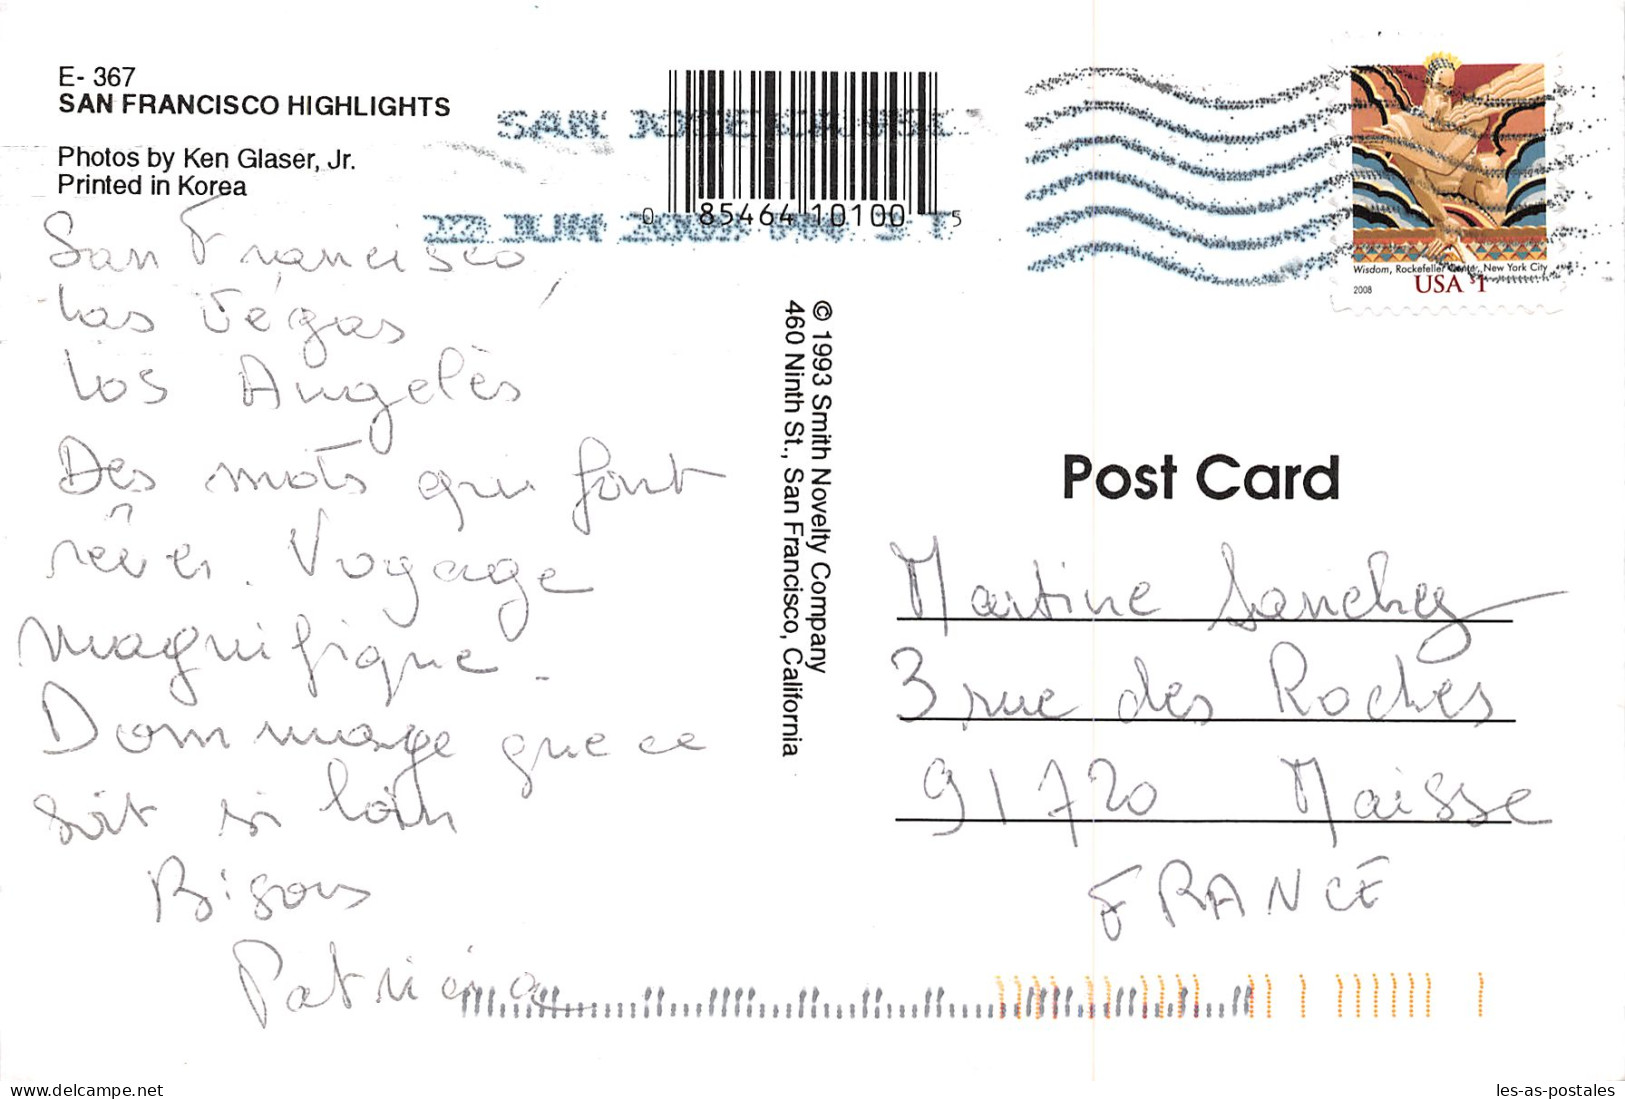 E- 367
SAN FRANCISCO HIGHLIGHTS
Photos by Ken Glaser, Jr.
Printed in Korea
San Francisco,
Las Végas,
Los Angelès
Des mots qui font
rêver. Voyage
magnifique.
Dommage que ce
soit si loin
Bisous
Patricia
0 85464 10100 5
SAN
22 JUN
© 1993 Smith Novelty Company
460 Ninth St., San Francisco, California
Wisdom, Rockefeller Center, New York City
2008 USA $1
Post Card
Martine Sanchez
3 rue des Roches
91720 Maisse
FRANCE
delcampe.net
les-as-postales